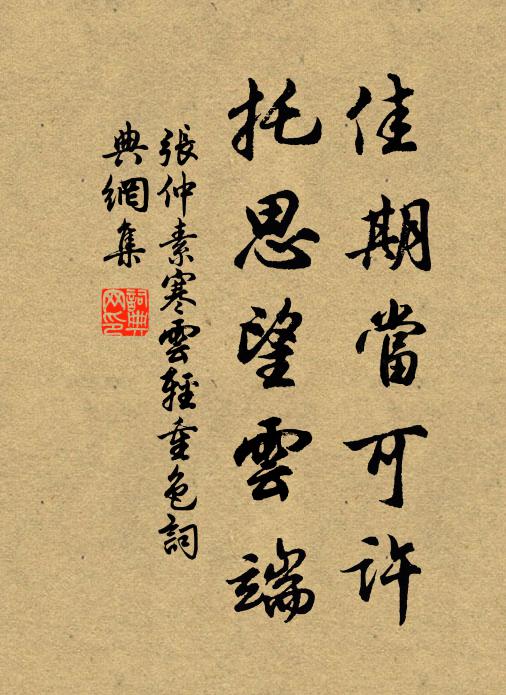 佳期當可許
托思望雲端
張仲素寒雲輕重色詞
典網集
詞典
網印